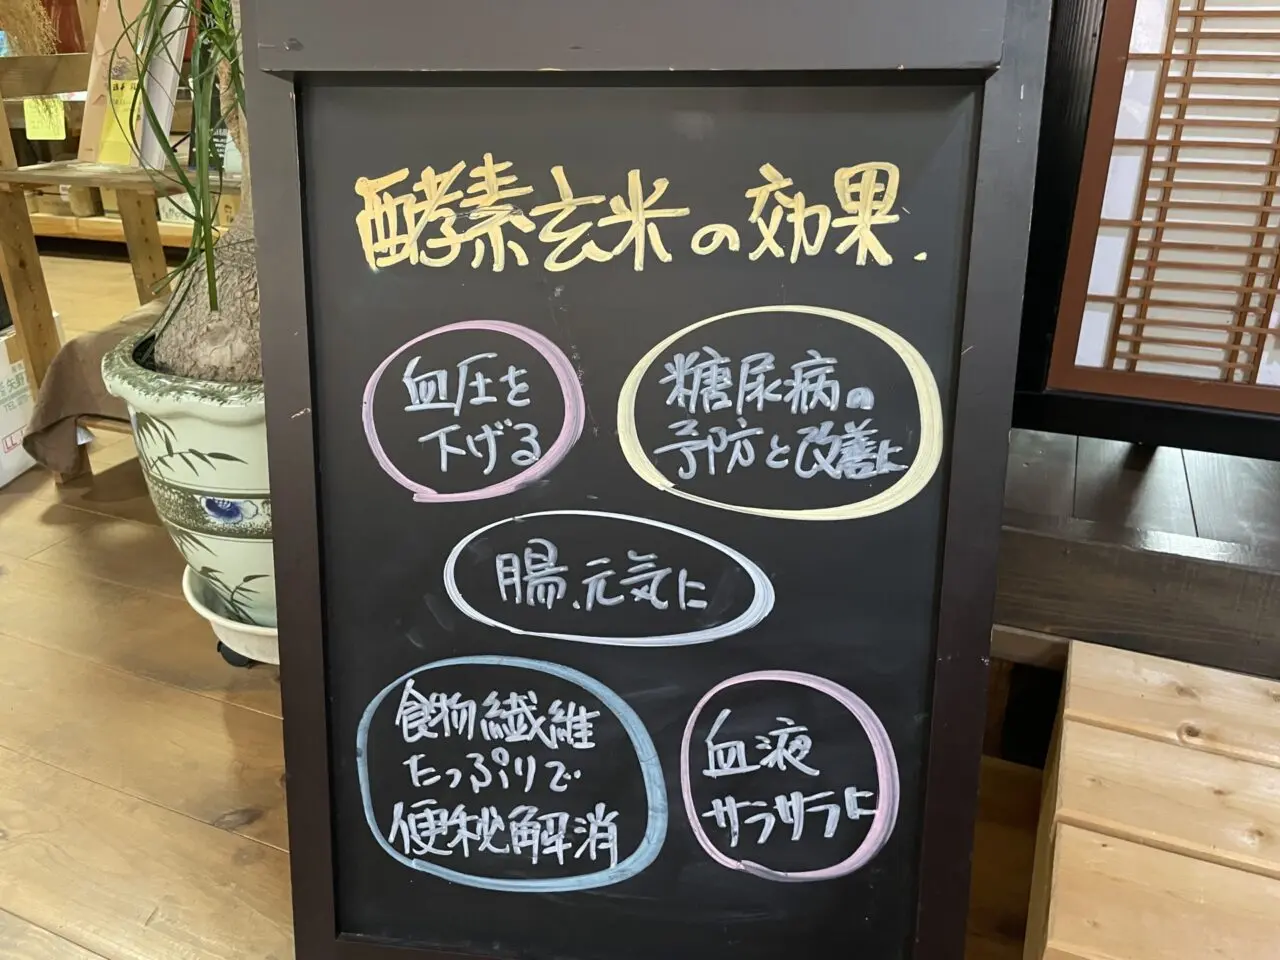 酵素玄米の効果.
血圧を
下げる
糖尿病の
予防と改善に
腸.元気に
食物繊維
たっぷりで
便秘解消
血液
サラサラに